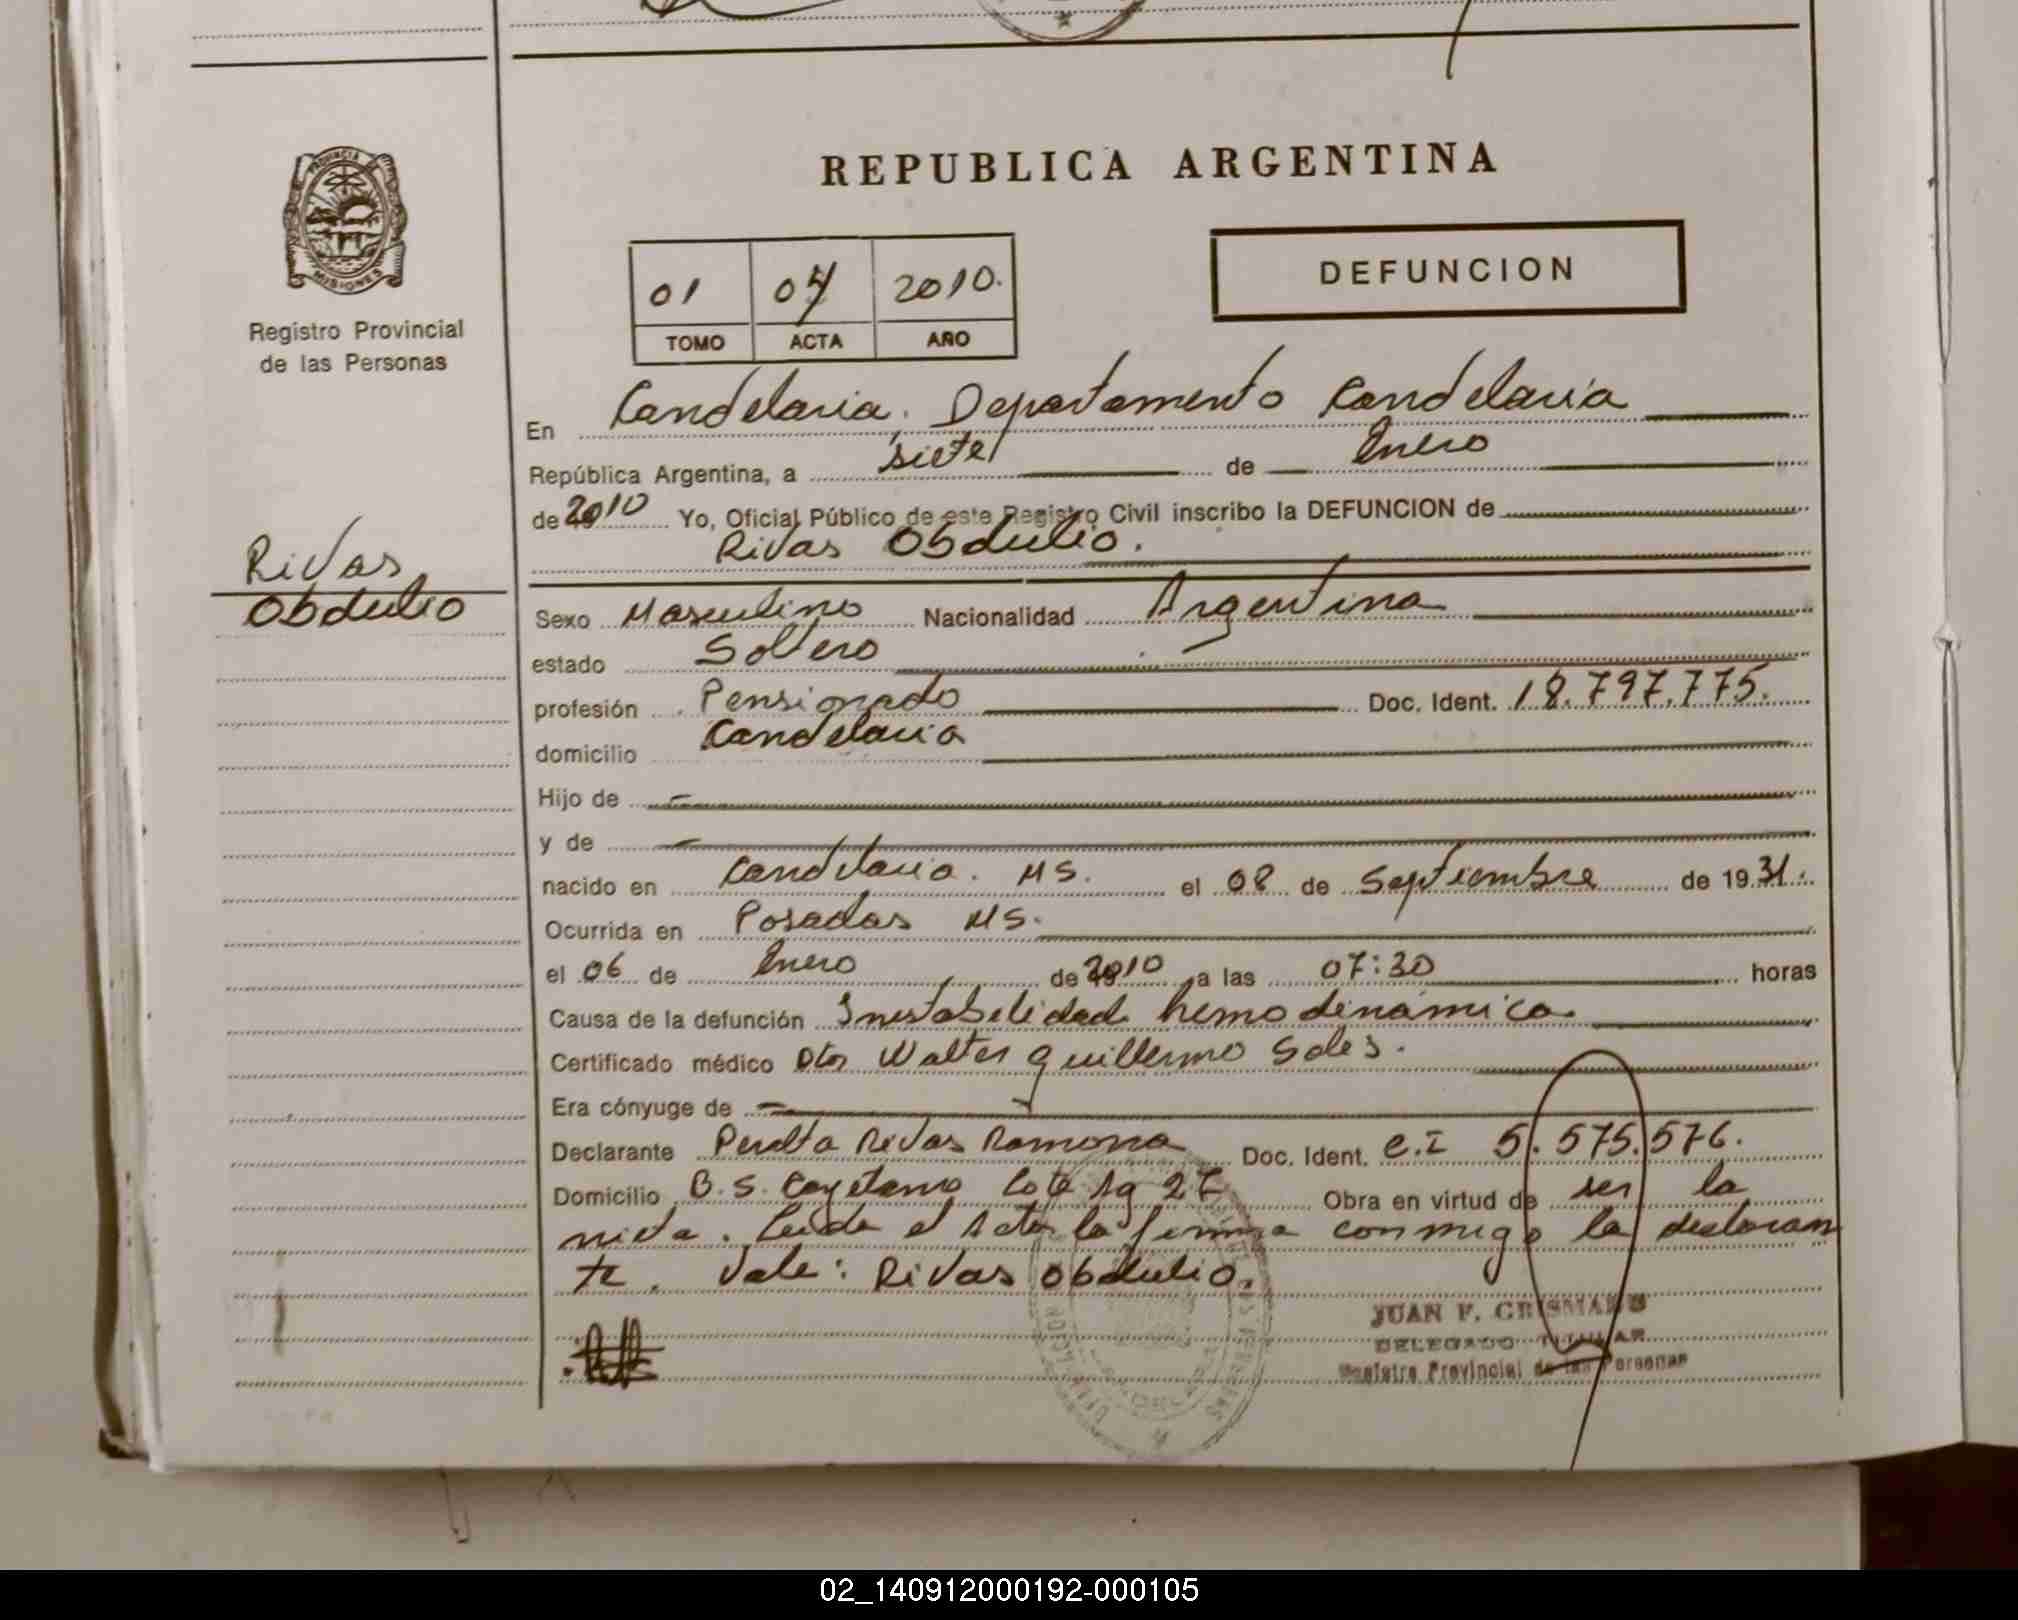 PROVINCIA DE
MISIONES
Registro Provincial
de las Personas
REPUBLICA ARGENTINA
01 04 2010.
TOMO ACTA AÑO
DEFUNCION
En Candelaria. Departamento Candelaria
República Argentina, a siete de Enero
de 2010 Yo, Oficial Público de este Registro Civil inscribo la DEFUNCION de
Rivas Obdulio.
Rivas
Obdulio
Sexo Masculino Nacionalidad Argentina
estado Soltero
profesión Pensionado Doc. Ident. 18.797.775.
domicilio Candelaria
Hijo de
y de
nacido en Candelaria. MS. el 08 de Septiembre de 1931.
Ocurrida en Posadas MS.
el 06 de Enero de 2010 a las 07:30 horas
Causa de la defunción Inestabelidad hemodinámica.
Certificado médico Dtor Walter Guillermo Soles.
Era cónyuge de
Declarante Peralta Rivas Ramona Doc. Ident. C.I 5.575.576.
Domicilio B.S. Cayetano Lote 19 27 Obra en virtud de ser la
nieta. Leida el Acta la firma conmigo la declaran
te. Vale: Rivas Obdulio.
JUAN F. CRISMANS
DELEGADO TITULAR
Registro Provincial de las Personas
02_140912000192-000105